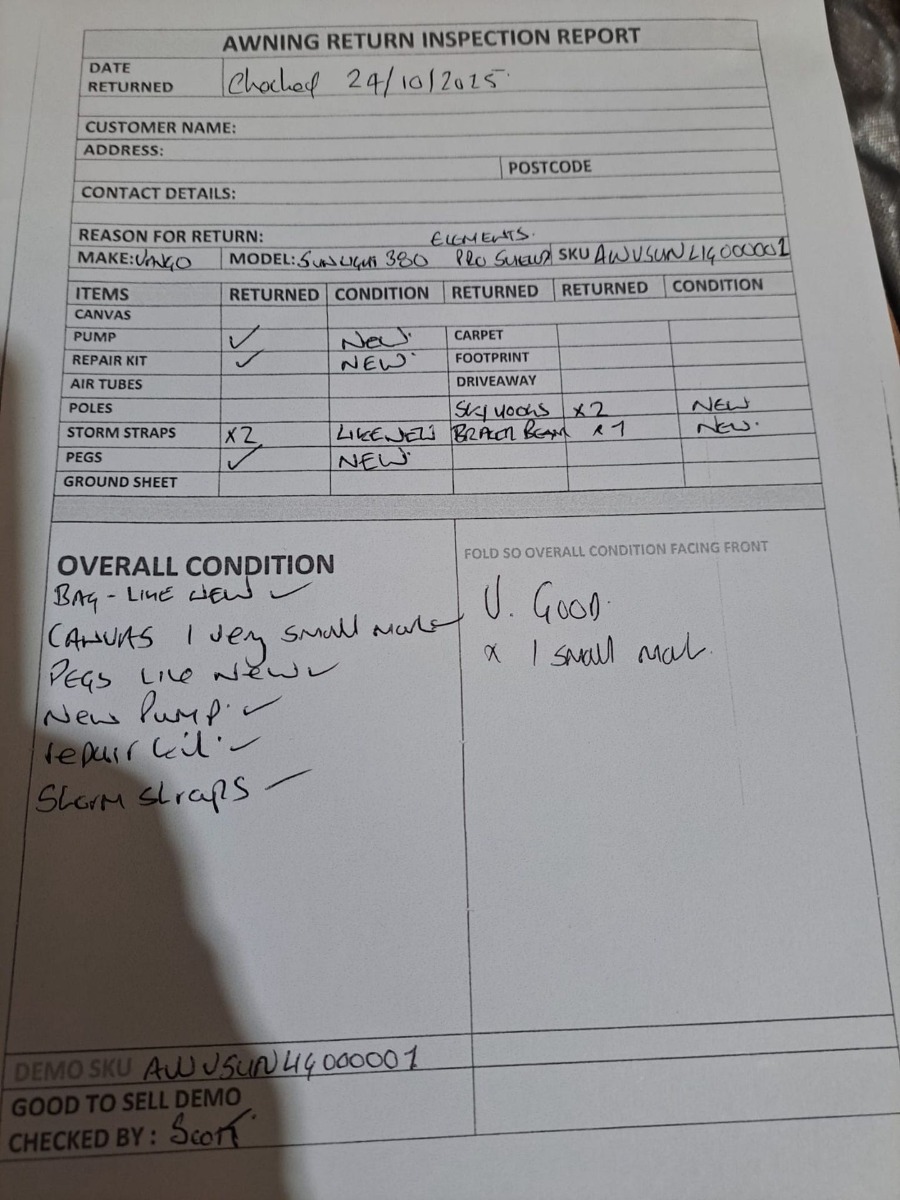 AWNING RETURN INSPECTION REPORT
DATE RETURNED Checked 24/10/2025.
CUSTOMER NAME:
ADDRESS:
POSTCODE
CONTACT DETAILS:
REASON FOR RETURN: ELEMENTS.
MAKE: VANGO MODEL: SUNLIGHT 380 PRO SHIELD SKU AWVSUNLIG000001
ITEMS RETURNED CONDITION RETURNED RETURNED CONDITION
CANVAS
PUMP ✓ New. CARPET
REPAIR KIT ✓ NEW. FOOTPRINT
AIR TUBES DRIVEAWAY
POLES SKY HOOKS x2 NEW
STORM STRAPS x2 LIKE NEW BRACER BEAM x1 NEW.
PEGS ✓ NEW.
GROUND SHEET
OVERALL CONDITION
BAG - LIKE NEW ✓
CANVAS 1 very small mark
PEGS LIKE NEW ✓
New Pump. ✓
repair kit. ✓
Storm straps ✓
FOLD SO OVERALL CONDITION FACING FRONT
V. GOOD.
x 1 small mark.
DEMO SKU AWVSUNLIG000001
GOOD TO SELL DEMO
CHECKED BY : Scott